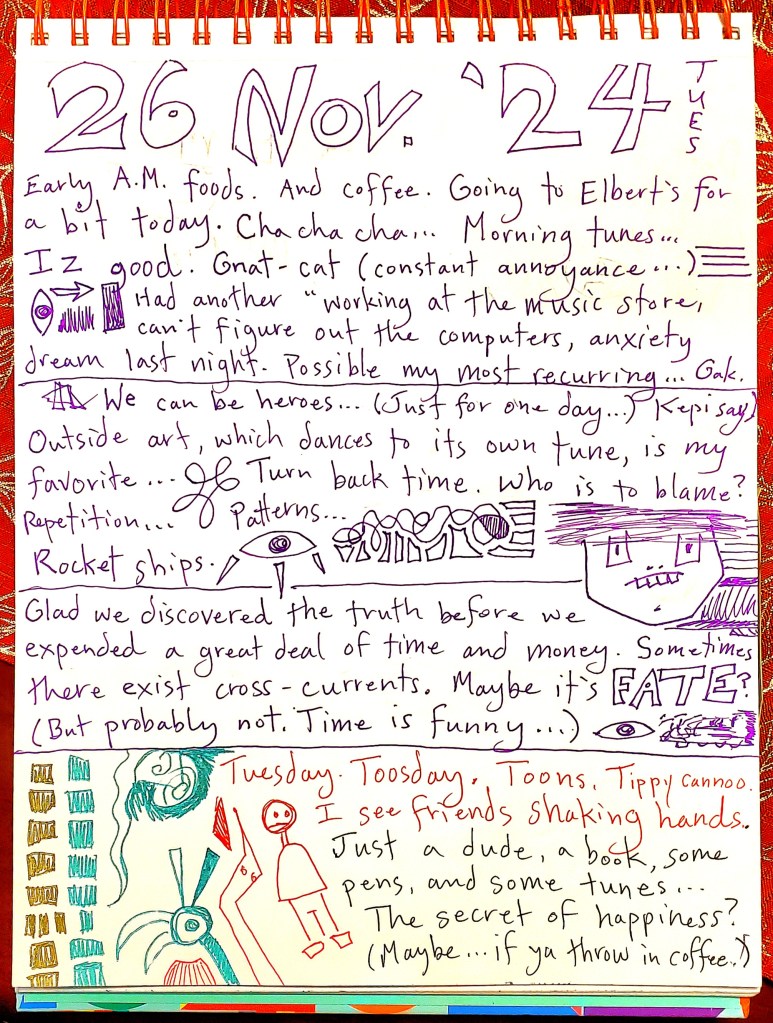 26 Nov. '24 TUES
Early A.M. foods. And coffee. Going to Elbert's for
a bit today. Cha cha cha... Morning tunes...
Iz good. Gnat-cat (constant annoyance...)
Had another "working at the music store,
can't figure out the computers, anxiety
dream last night. Possible my most recurring... Gak.
We can be heroes... (Just for one day...) Kepi say)
Outside art, which dances to its own tune, is my
favorite... Turn back time. Who is to blame?
Repetition... Patterns...
Rocket ships.
Glad we discovered the truth before we
expended a great deal of time and money. Sometimes
there exist cross-currents. Maybe it's FATE?
(But probably not. Time is funny...)
Tuesday. Toosday. Toons. Tippy cannoo.
I see friends shaking hands.
Just a dude, a book, some
pens, and some tunes...
The secret of happiness?
(Maybe... if ya throw in coffee.)